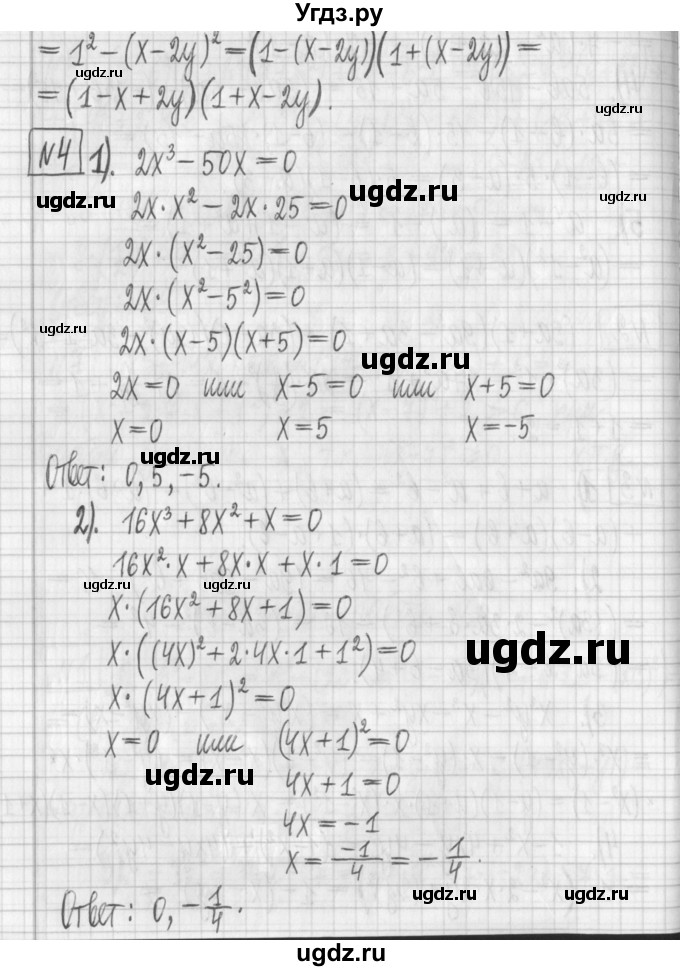 Угдз.ру
= 1² − (x − 2y)² = (1 − (x − 2y))(1 + (x − 2y)) =
ugdz.ru
= (1 − x + 2y)(1 + x − 2y).
ugdz.ru
№4 1). 2x³ − 50x = 0
ugdz.ru ugdz.ru ugdz.ru
2x · x² − 2x · 25 = 0
2x · (x² − 25) = 0
2x · (x² − 5²) = 0
ugdz.ru
2x · (x − 5)(x + 5) = 0
ugdz.ru
2x = 0 или x − 5 = 0 или x + 5 = 0
x = 0 x = 5 x = −5
ugdz.ru
Ответ: 0, 5, −5.
2). 16x³ + 8x² + x = 0
16x² · x + 8x · x + x · 1 = 0
ugdz.ru ugdz.ru
x · (16x² + 8x + 1) = 0
ugdz.ru
x · ((4x)² + 2 · 4x · 1 + 1²) = 0
x · (4x + 1)² = 0
x = 0 или (4x + 1)² = 0
ugdz.ru
4x + 1 = 0
4x = −1
x = −1/4 = −1/4.
ugdz.ru ugdz.ru
Ответ: 0, −1/4.
ugdz.ru